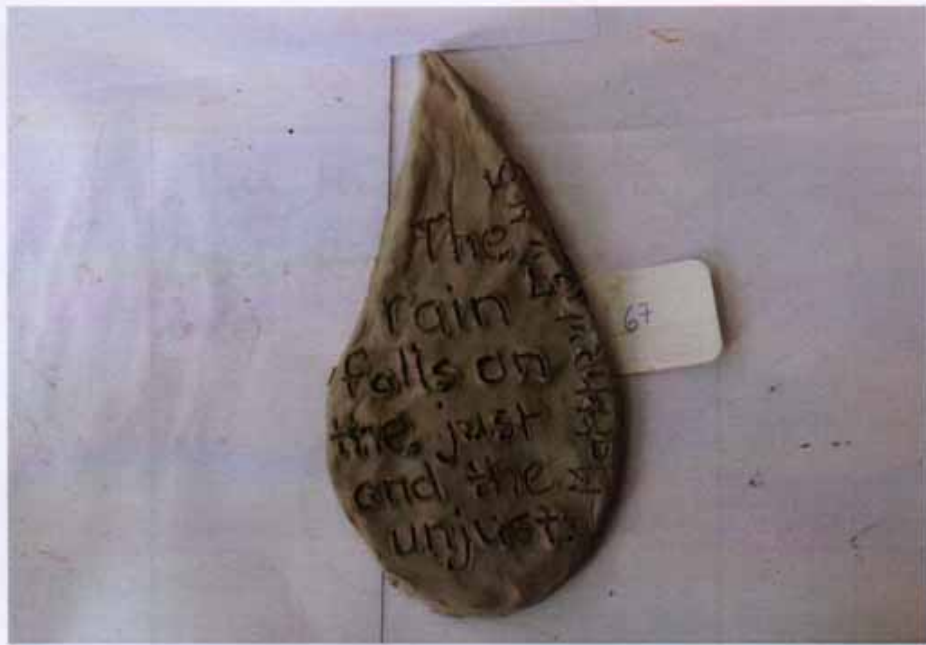 The
rain
falls on
the just
and the
unjust.
67